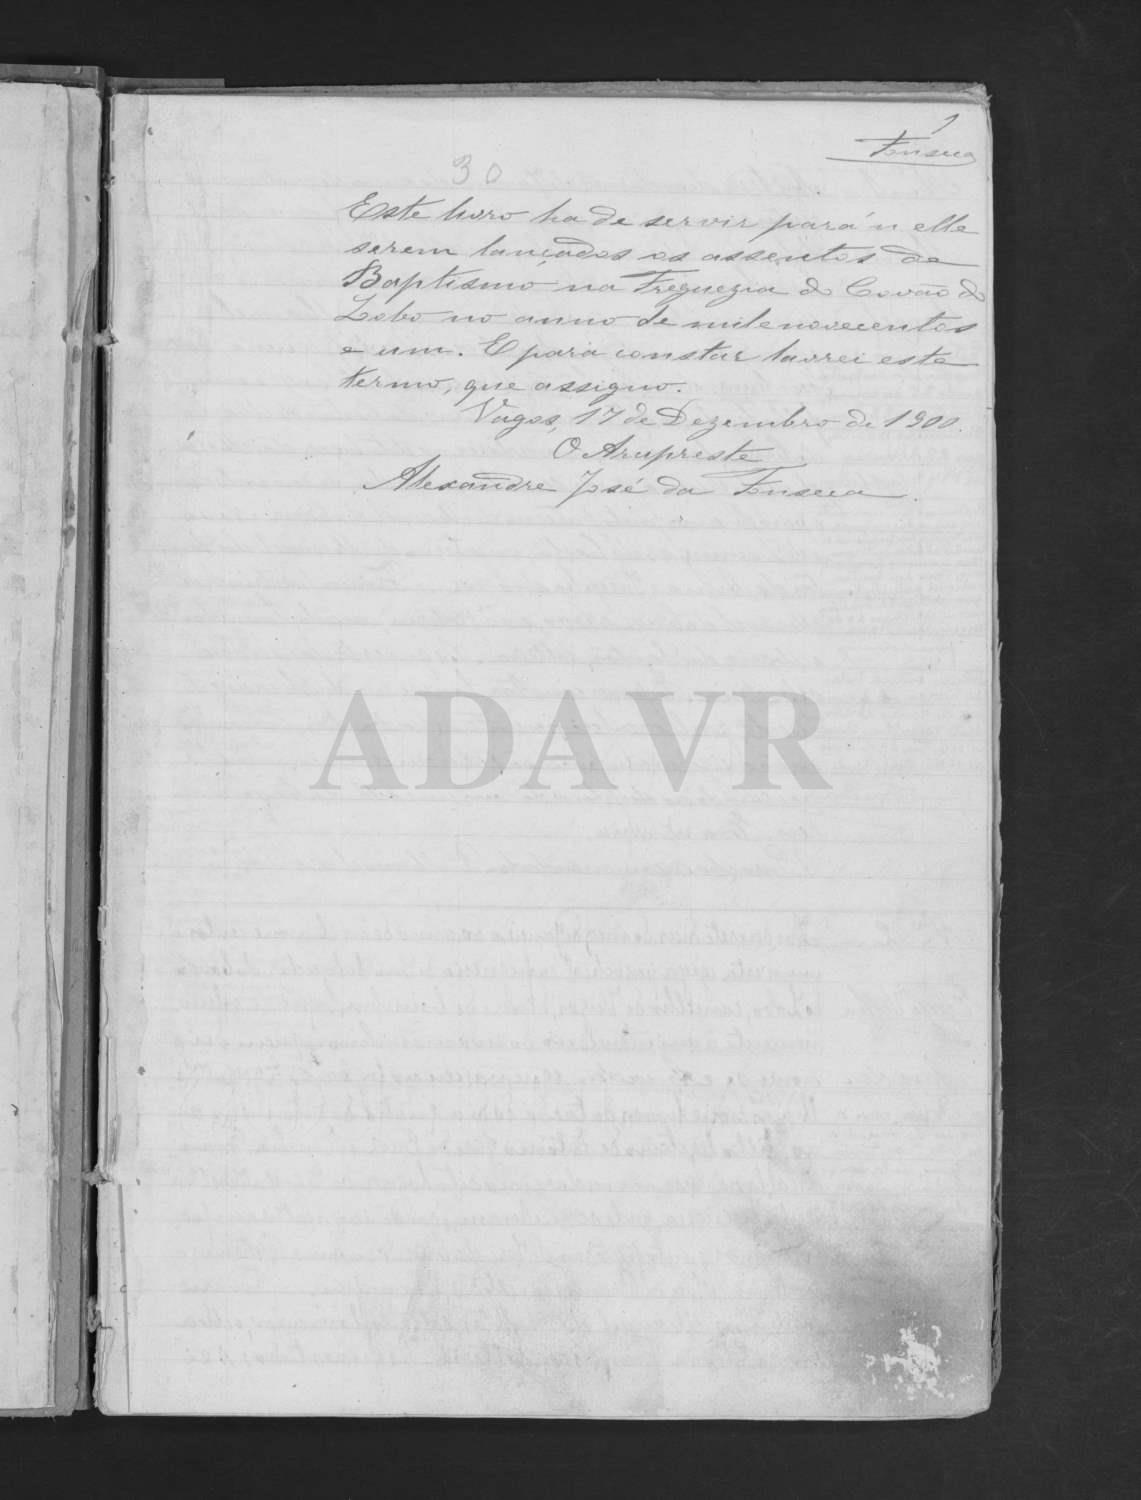 1
Fonseca
30
Este livro ha de servir para n'elle
serem lançados os assentos de
Baptismo na Freguezia do Covão do
Lobo no anno de mil e novecentos
e um. E para constar lavrei este
termo, que assigno.
Vagos, 17 de Dezembro de 1900.
O Arcipreste
Alexandre José da Fonseca.
ADAVR